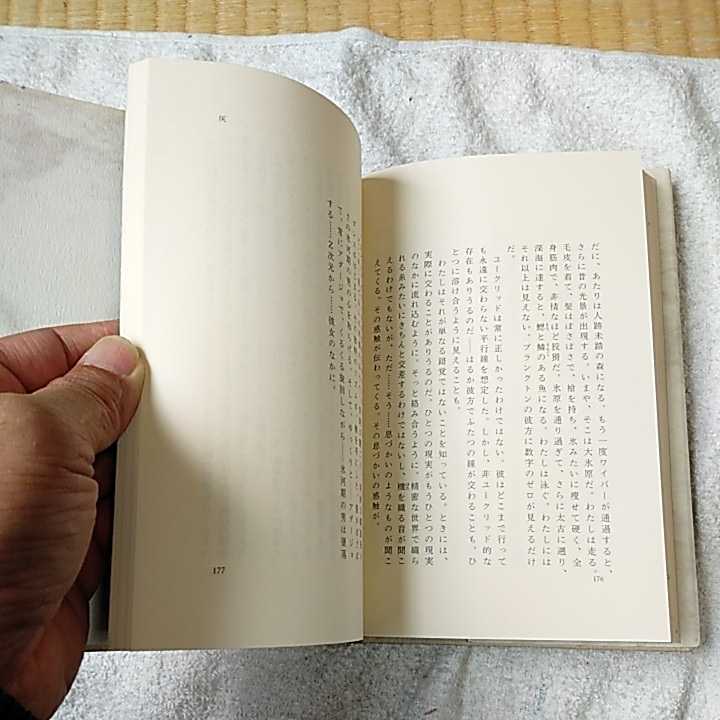 だに、あたりは人跡未踏の森になる。もう一度ワイパーが通過すると、
さらに昔の光景が出現する。いまや、そこは大氷原だ。わたしは走る。
毛皮を着て、髪はぼさぼさで、槍を持ち、氷みたいに瘦せて硬く、全
身筋肉で、非情なほど狡猾だ。氷原を通り過ぎて、さらに太古に遡り、
深海に達すると、鰓と鱗のある魚になる。わたしは泳ぐ。わたしには
それ以上は見えない。プランクトンの彼方に数字のゼロが見えるだけ
だ。
ユークリッドは常に正しかったわけではない。彼はどこまで行って
も永遠に交わらない平行線を想定した。しかし、非ユークリッド的な
存在もありうるのだ――はるか彼方でふたつの線が交わることも。ひ
とつに溶け合うように見えることも。
わたしはそれが単なる錯覚ではないことを知っている。ときには、
実際に交わることがありうるのだ、ひとつの現実がもうひとつの現実
のなかに流れ込むように。そっと絡み合うように。精密な世界で織ら
れる糸みたいにきちんと交差するわけではないし、機を織る音が聞こ
えるわけでもないが、ただ……そう……息づかいのようなものが聞こ
えてくる。その感触が伝わってくる。その息づかいの感触が。
176
灰
する……２次光から……彼女のなかに。
177